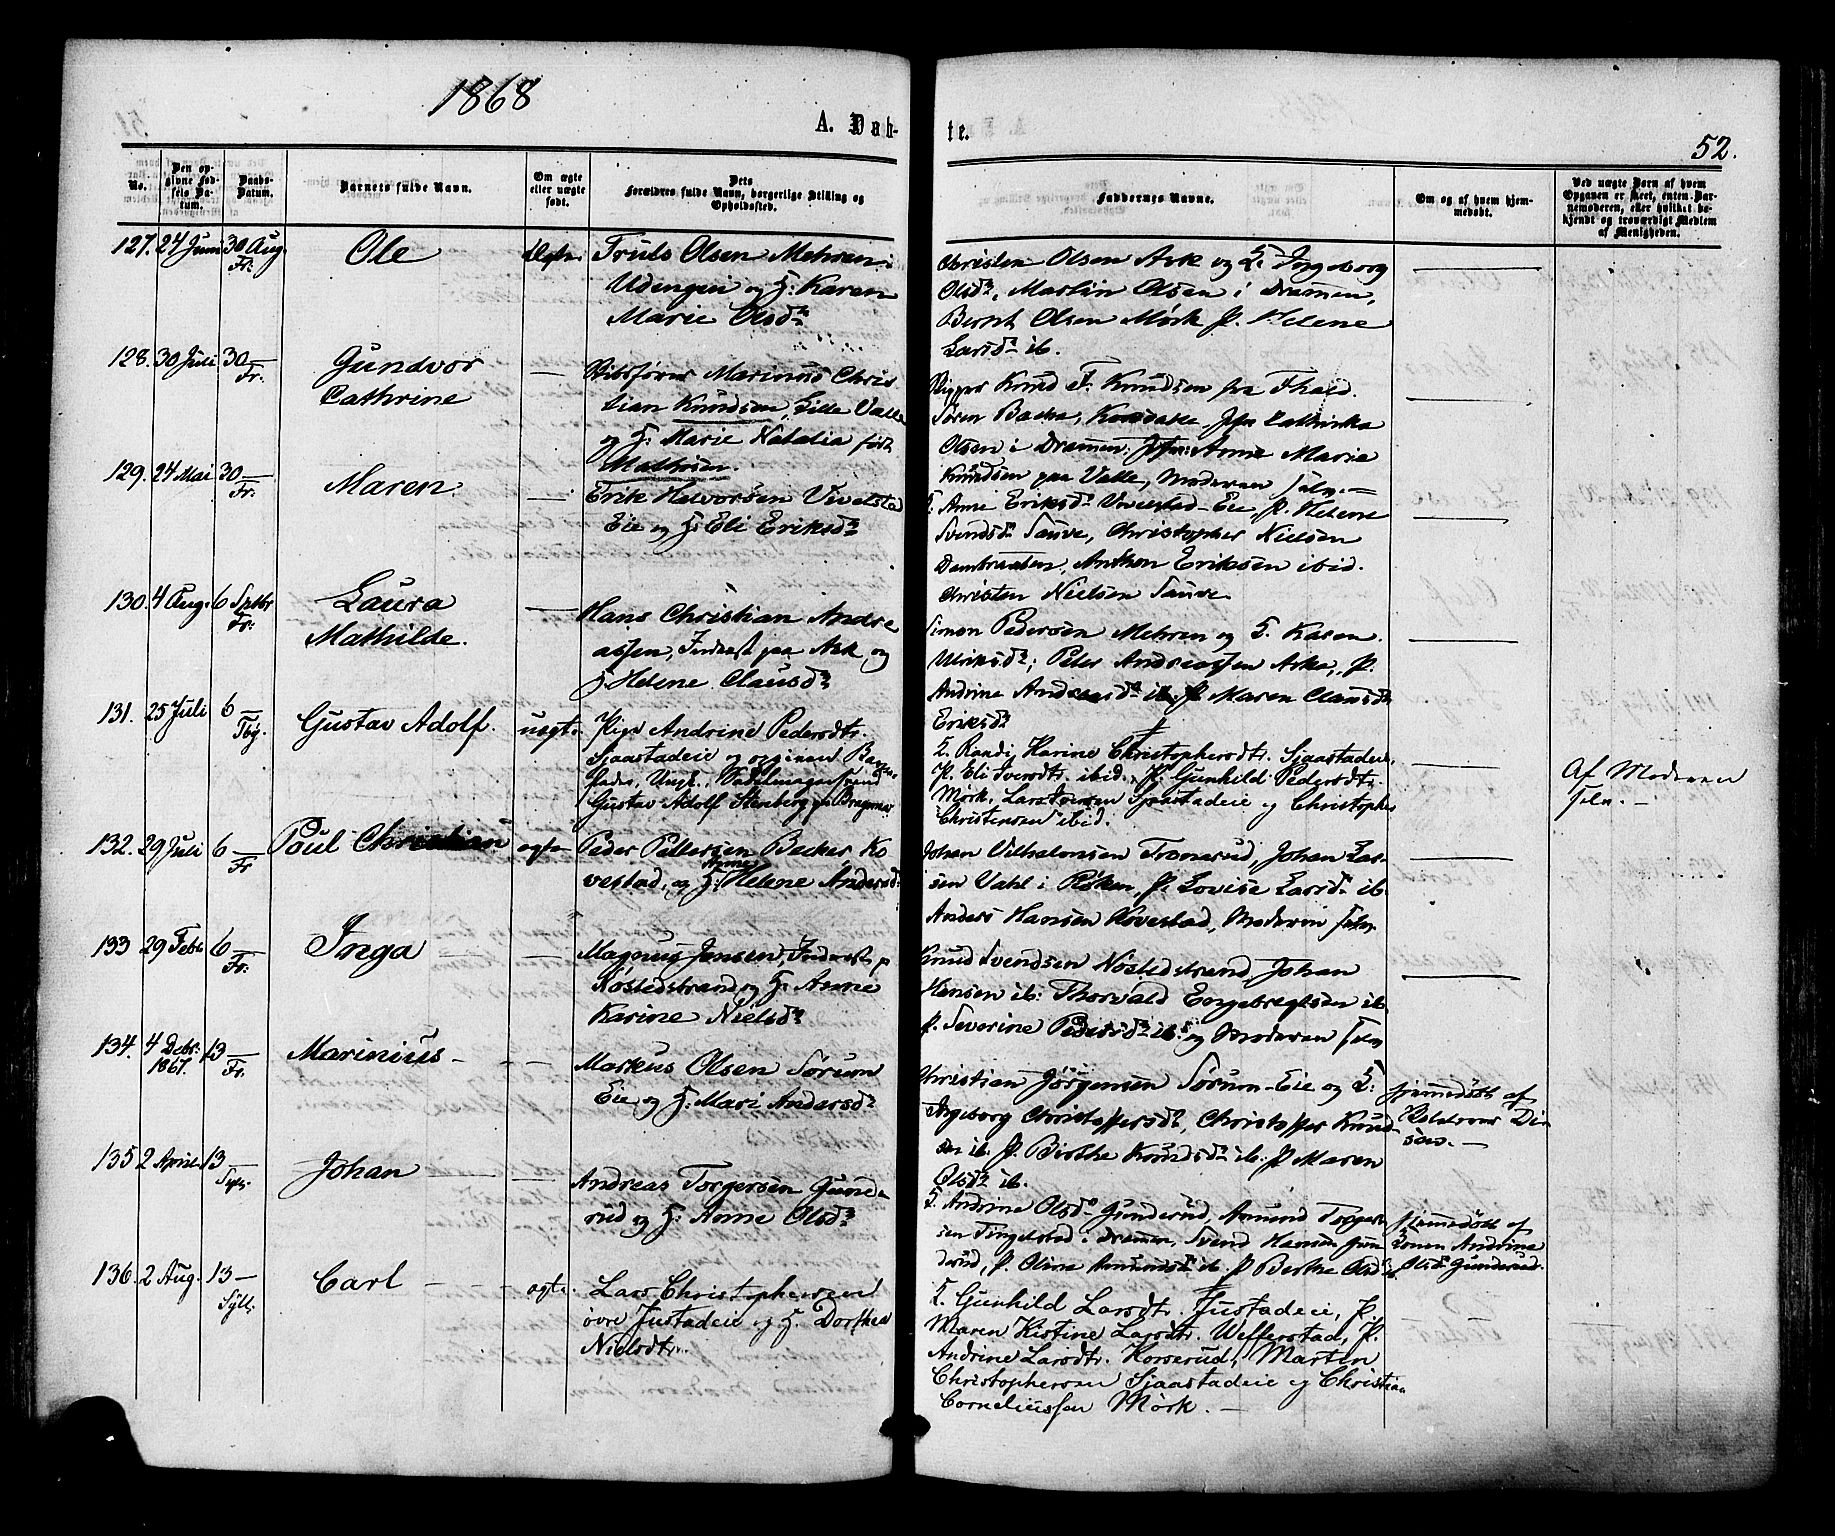 1868
A. Døb-
te.
52.
No.
Den op-
givne Fød-
sels Da-
tum.
Daabs-
Datum.
Barnets fulde Navn.
Om ægte
eller uægte
født.
Dets
Forældres fulde Navn, borgerlige Stilling og
Opholdssted.
Faddernes Navne.
Om og af hvem hjem-
medøbt.
Ved uægte Børn af hvem
Opgaven er skeet, enten Bar-
nemoderen, eller hvilket be-
kjendt og troværdigt Medlem
af Menigheden.
127. 24 Juni 30 Aug. Fr: Ole Ægte. Truls Olsen Mehren i
Udengen og H: Karen
Marie Olsdr
Christen Olsen Ask og H. Ingeborg
Olsdr, Martin Olsen i Drammen,
Bernt Olsen Mørk, P. Helene
Larsdr ib.
128. 30 Juli 30 — Fr: Gundvor
Cathrine — Skibsfører Marinus Chris
tian Knudsen, Lille Valle
og H: Marie Natalia født
Mathisen.
Skipper Knud F. Knudsen
Søren Backe, Jfr Cathinka
Olsen i Drammen, Jfr: Anne Marie
Knudsen paa Valle, Moderen selv.—
129. 24 Mai 30 — Fr: Maren. — Erik Halvorsen Vivelstad
Eie og H: Eli Eriksdr
H. Anne Eriksdr Vivelstad-Eie, P. Helene
Svendsdr Sauve, Christopher Nielsen
Dambraaten, Anthon Eriksen ibid.
Christen Nielsen Sauve.
130. 4 Aug. 6 Septbr Fr: Laura
Mathilde. — Hans Christian Andre
assen, Inderst paa Ask og
H Helene Clausdr
Simon Pedersen Mehren og H. Karen
Ulriksdr; Peter Andreassen Aske, P.
Andrine Andreasdr ib. P. Maren Clausdr
Eriksdr
131. 25 Juli 6 — Gustav Adolf. uægte Pige Andrine Pedersdtr.
Sjaastadeie og opgiven Barne-
fader, Ungk. Sadelmagersvend
Gustav Adolf Stenberg paa Bragernæs
H. Randi Karine Christophersdtr. Sjaastadeie,
P. Eli Iversdtr. ibid., P. Gunhild Pedersdtr.
Mørk, Lars Iversen Sjaastadeie og Christopher
Christensen ibid.
Af Moderen
selv.—
132. 29 Juli 6 — Fr Poul Christian ægte Peder Pettersen Becker, Ko
vestad, og H: Anne Helene Andersdr
Johan Vilhelmsen Tronerud, Johan Lar-
sen Vahl i Røken, P. Lovise Larsdr ib.
Anders Hansen Kovestad, Moderen selv
133 29 Febr 6 — Fr. Inga — — Magnus Jensen, Inderst p
Nøstedstrand og H. Anne
Karine Nielsdr
Knud Svendsen Nøstedstrand, Johan
Hansen ib: Thorvald Engebregtsen ib.
P. Severine Pedersdr ib. og Moderen selv
134. 4 Debr: 1867. 13 — Fr. Marinius — — Markus Olsen Sørum
Eie og H: Mari Andersdr
Christian Jørgensen Sørum-Eie og H:
Ingeborg Christoffersdr, Christoffer Knud-
sen ib. P. Birthe Knudsdr ib. P Maren
Olsdr ib.
hjemmedøbt af
135 2 April 13 — Johan — — Andreas Torgersen Gunde
rud og H: Anne Olsdr
H. Andrine Olsdr Gunderud, Amund Torger
sen Tingelstad i Drammen, Svend Hansen Gun
derud, P. Oline Amundsdr ib. P Berthe Olsdr ib.
hjemmedøbt af
Konen Andrine
Olsdr Gunderud.
136. 2 Aug. 13 — Syll: Carl — — ægte. Lars Christophersen
øvre Justadeie og H. Dorthea
Nielsdtr.
H. Gunhild Larsdtr. Justadeie, P.
Maren Kistine Larsdtr. Wefferstad, P.
Andrine Larsdtr. Korserud, Martin
Christophersen Sjaastadeie og Christian
Corneliussen Mørk. —